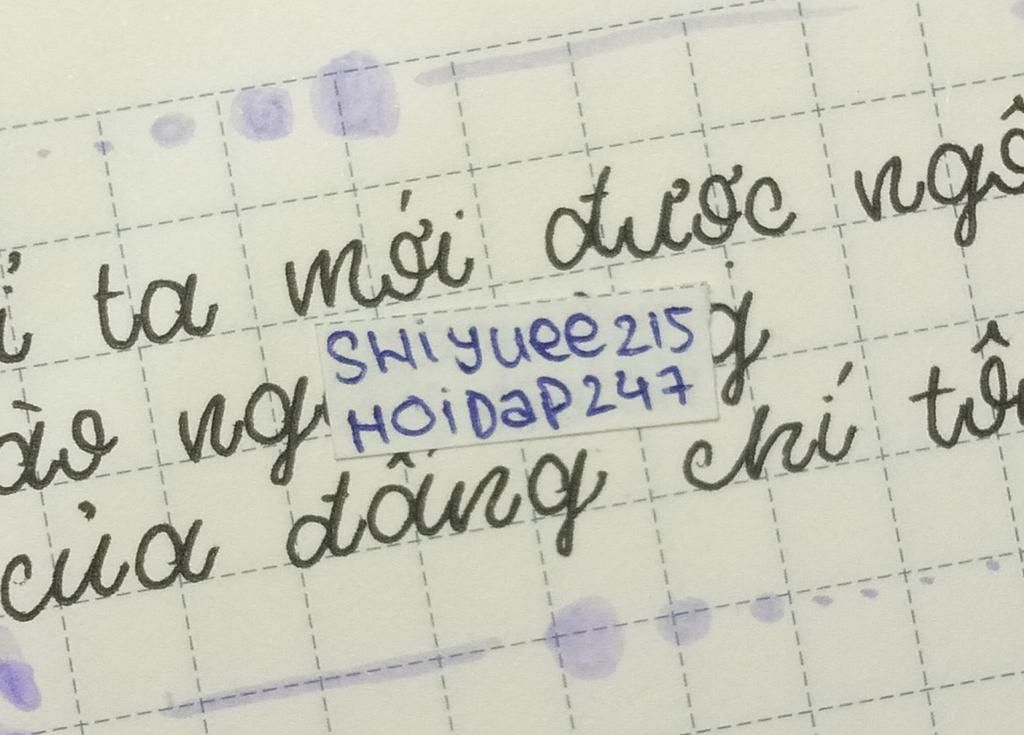 ta mới được ngô
ào
SHiyuee215
HOiDaP247
của đấng chí tôn